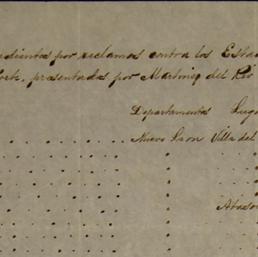 dientes por reclamos contra los Esta
presentadas por Martinez del Rio
Departamentos Luga
Nuevo Leon Villa del